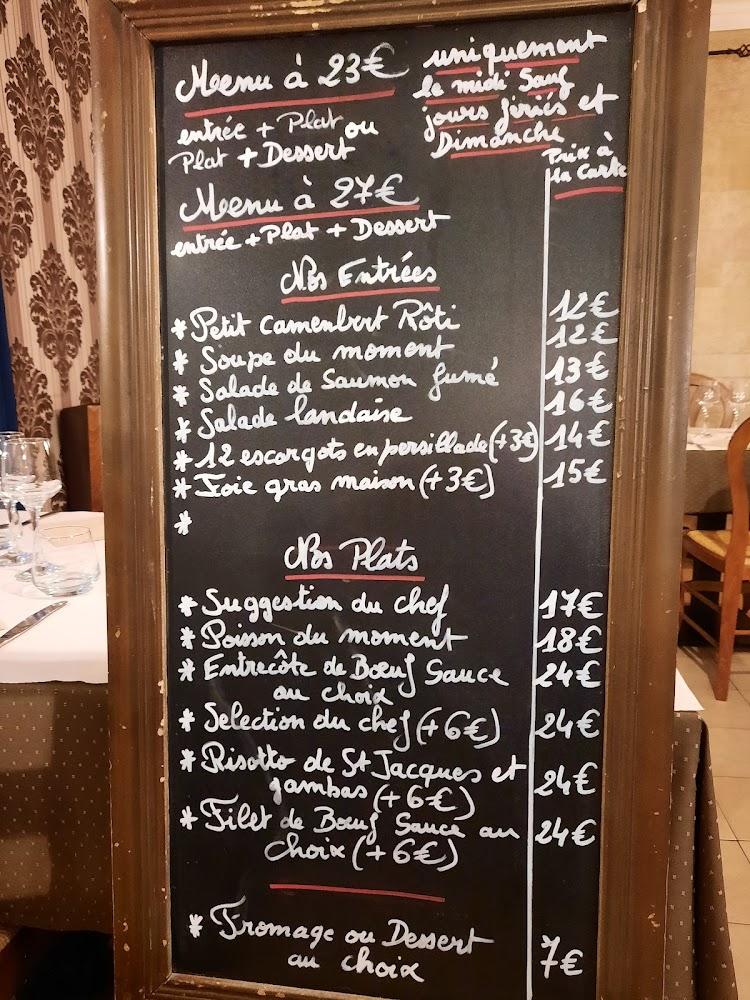 Menu à 23€
uniquement
le midi Sauf
jours fériés et
Dimanche
entrée + Plat ou
Plat + Dessert
Prix à
la Carte
Menu à 27€
entrée + Plat + Dessert
Nos Entrées
* Petit camenbert Rôti 12€
* Soupe du moment 12€
* Salade de Saumon fumé 13€
* Salade landaise 16€
* 12 escargots en persillade (+3€) 14€
* Foie gras maison (+3€) 15€
*
Nos Plats
* Suggestion du chef 17€
* Poisson du moment 18€
* Entrecôte de Bœuf Sauce 24€
au choix
* Selection du chef (+6€) 24€
* Risotto de St Jacques et
gambas (+6€) 24€
* Filet de Bœuf Sauce au 24€
choix (+6€)
* Fromage ou Dessert
au choix 7€